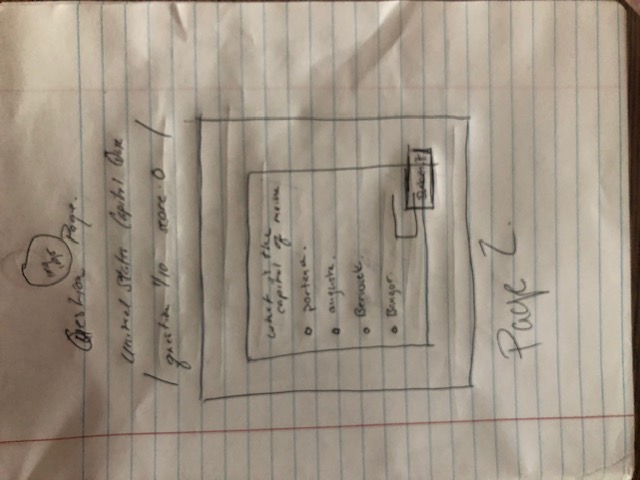 Question Page.
United States Capital Quiz
question 1/10 score: 0
what is the
capital of maine
portland.
augusta.
Berwick.
Bangor.
Submit
Page 2.